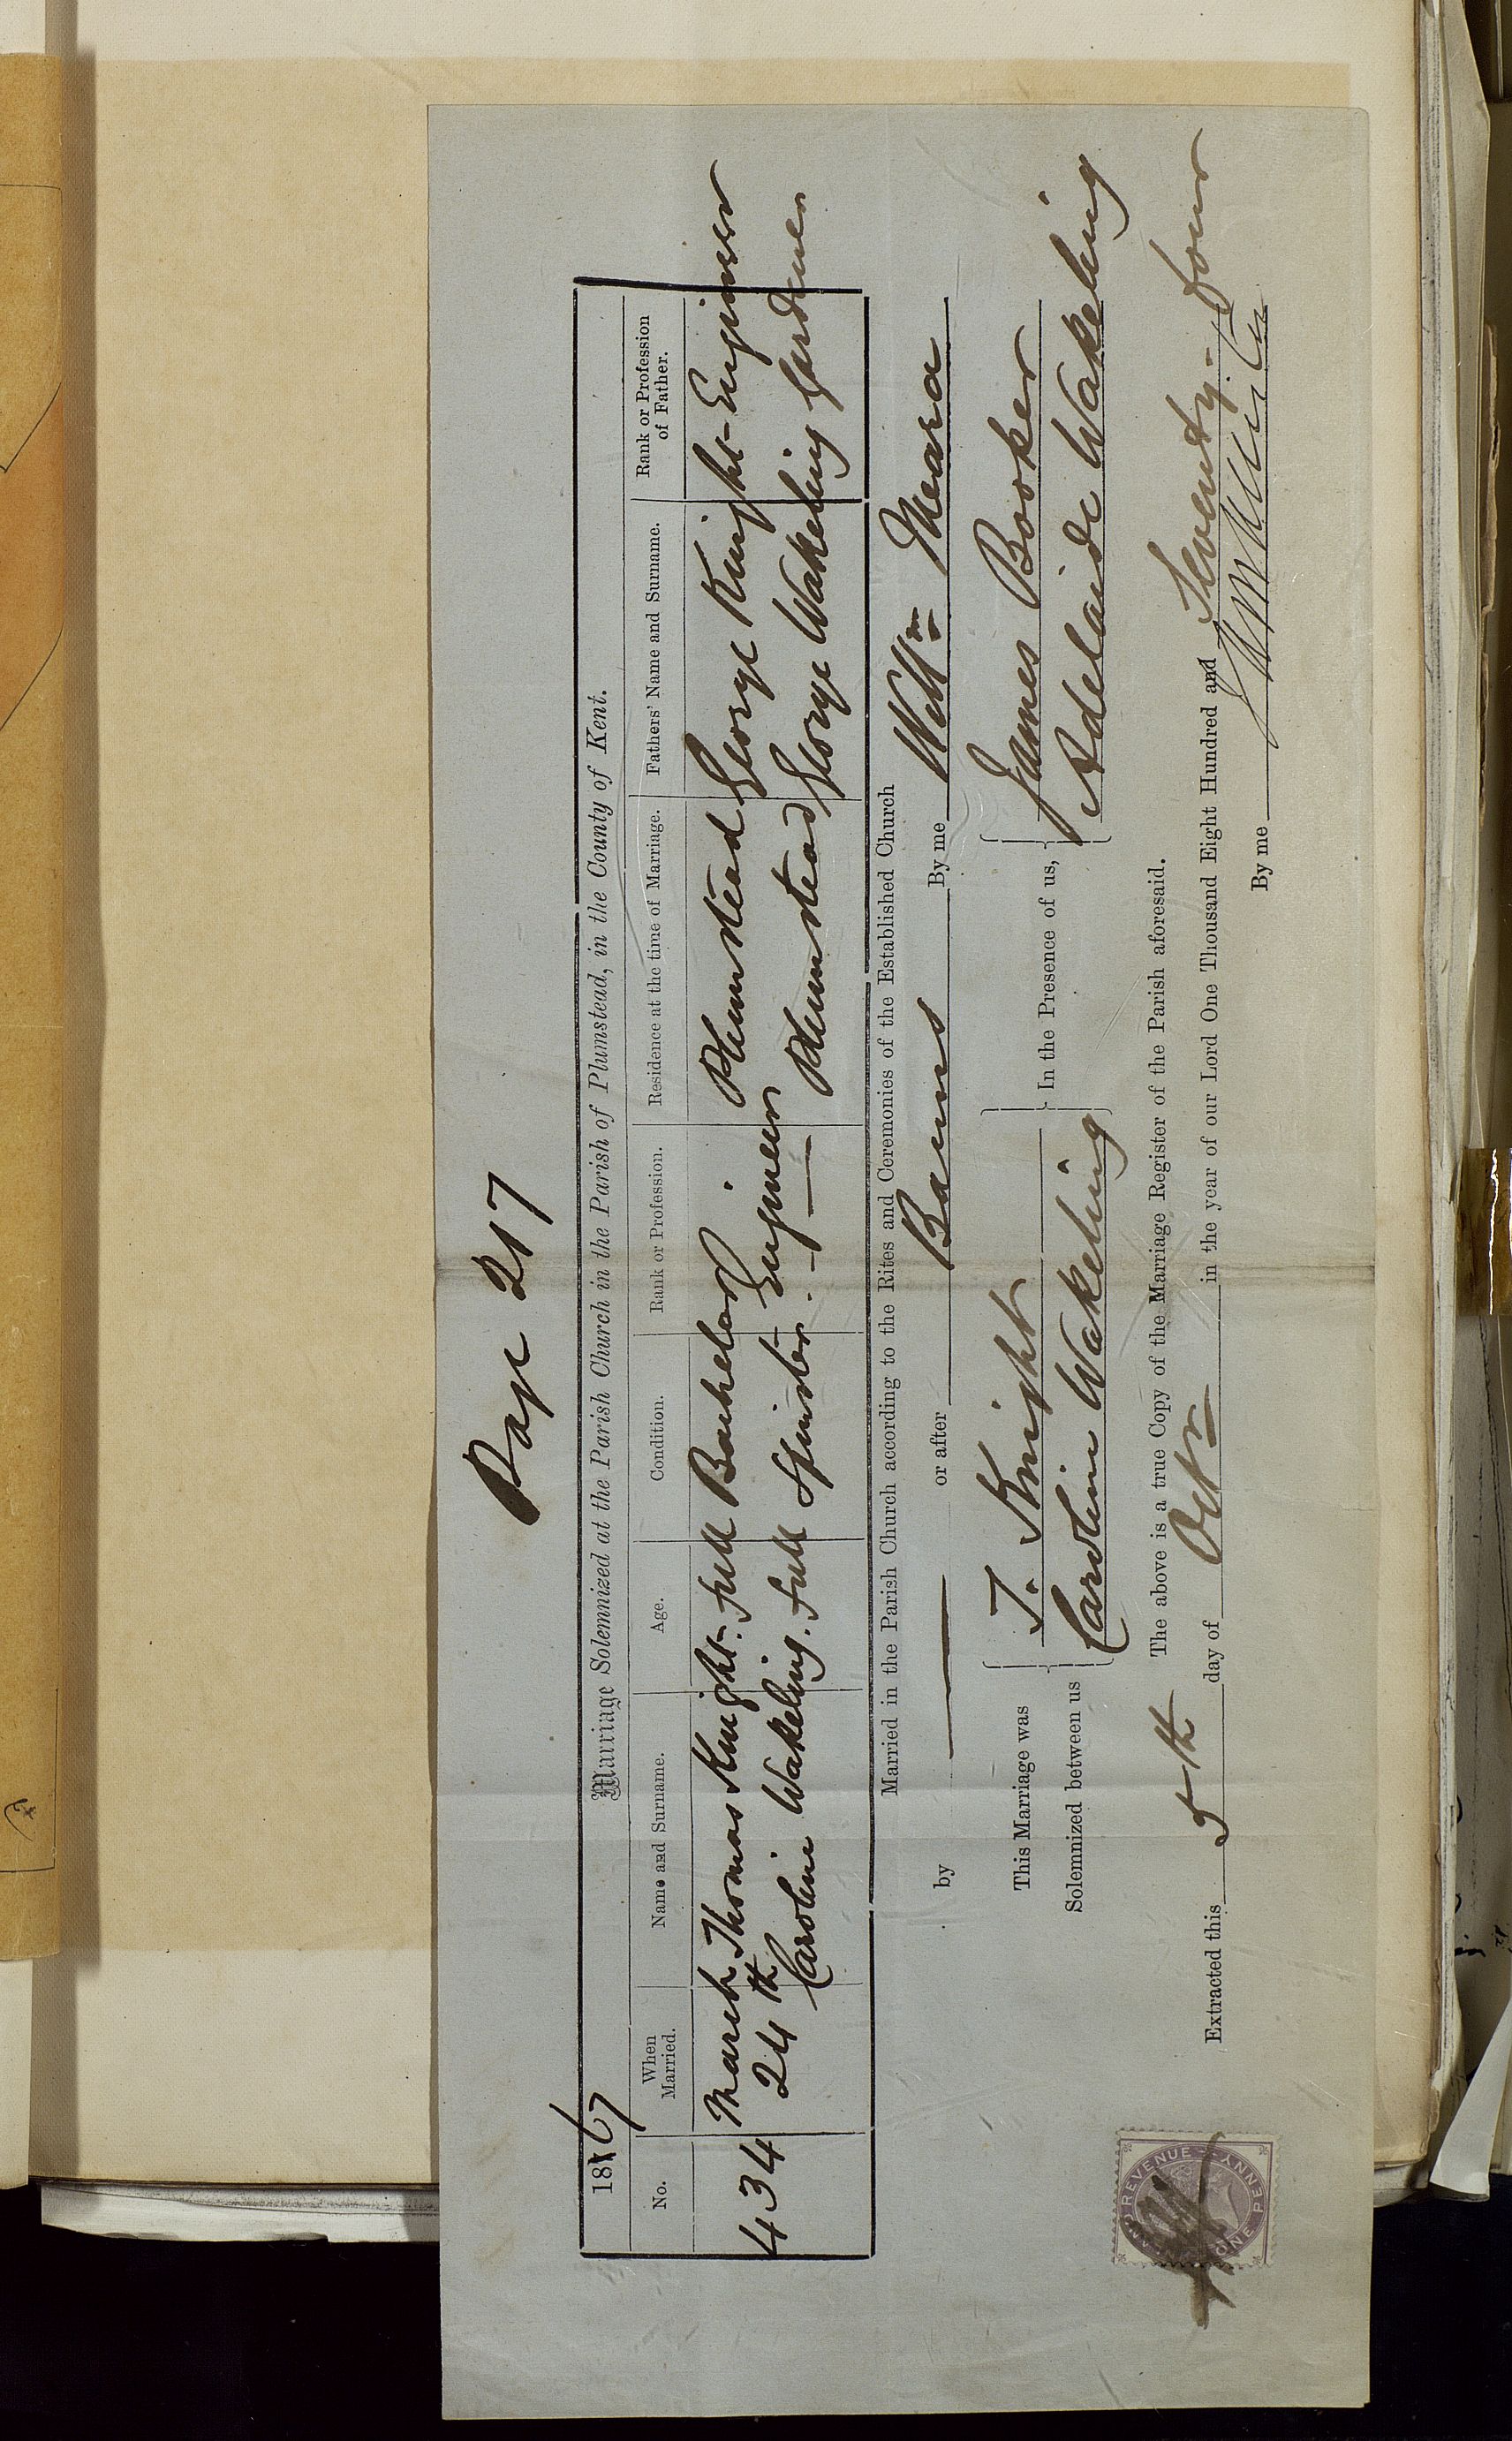 Page 217
1867 Marriage Solemnized at the Parish Church in the Parish of Plumstead, in the County of Kent.
No. When Married. Name and Surname. Age. Condition. Rank or Profession. Residence at the time of Marriage. Fathers' Name and Surname. Rank or Profession of Father.
434 March Thomas Knight. full Bachelor Engineer Plumstead George Knight - Engineer
24th Caroline Wakeling. full Spinster. — Plumstead George Wakeling Gardener
Married in the Parish Church according to the Rites and Ceremonies of the Established Church
by — or after Banns By me Willm Meara
This Marriage was Solemnized between us
T. Knight
Caroline Wakeling
In the Presence of us,
James Booker
Adelaide Wakeling
The above is a true Copy of the Marriage Register of the Parish aforesaid.
Extracted this 5th day of Octr in the year of our Lord One Thousand Eight Hundred and Seventy-four
By me
INLAND REVENUE
ONE PENNY